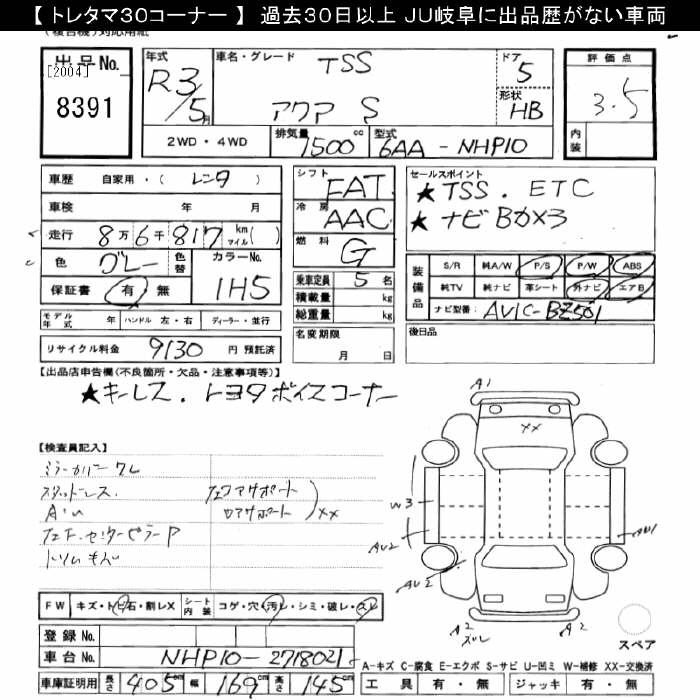 【 トレタマ30コーナー 】 過去30日以上 JU岐阜に出品歴がない車両
出品No. [2004] 8391
年式 R3/5月
車名・グレード TSS アクア S
ドア 5
形状 HB
評価点 3.5
内装
2WD・4WD
排気量 1500cc
型式 6AA-NHP10
車歴 自家用・( レンタ )
車検 年 月
走行 8万6千817 km マイル( )
色 グレー 色替 カラーNo. 1H5
保証書 有 無
モデル年式 年 ハンドル 左・右 ディーラー・並行
リサイクル料金 9130 円 預託済
シフト FAT
冷房 AAC
燃料 G
乗車定員 5 名
積載量 kg
総重量 kg
名変期限 月 日
セールスポイント
★TSS. ETC
★ナビBカメラ
装備品 S/R 純A/W P/S P/W ABS
純TV 純ナビ 革シート 外ナビ エアB
ナビ型番 AVIC-BZ501
後日品
【出品店申告欄(不良箇所・欠品・注意事項等)】
★キーレス. トヨタボイスコーナー
【検査員記入】
ミラーカバークレ
スタットレス.
コアサポート XX
A1
XX
W3
AU2
AU2
A2
A2
FW キズ・トビ石・割レX
シート内装 コゲ・穴・汚レ・シミ・破レ・スレ
登録No.
車台No. NHP10-2718021
車庫証明用 長さ 405 幅 169 高さ 145
スペア
A-キズ C-腐食 E-エクボ S-サビ U-凹ミ W-補修 XX-交換済
工具 有・無 ジャッキ 有・無